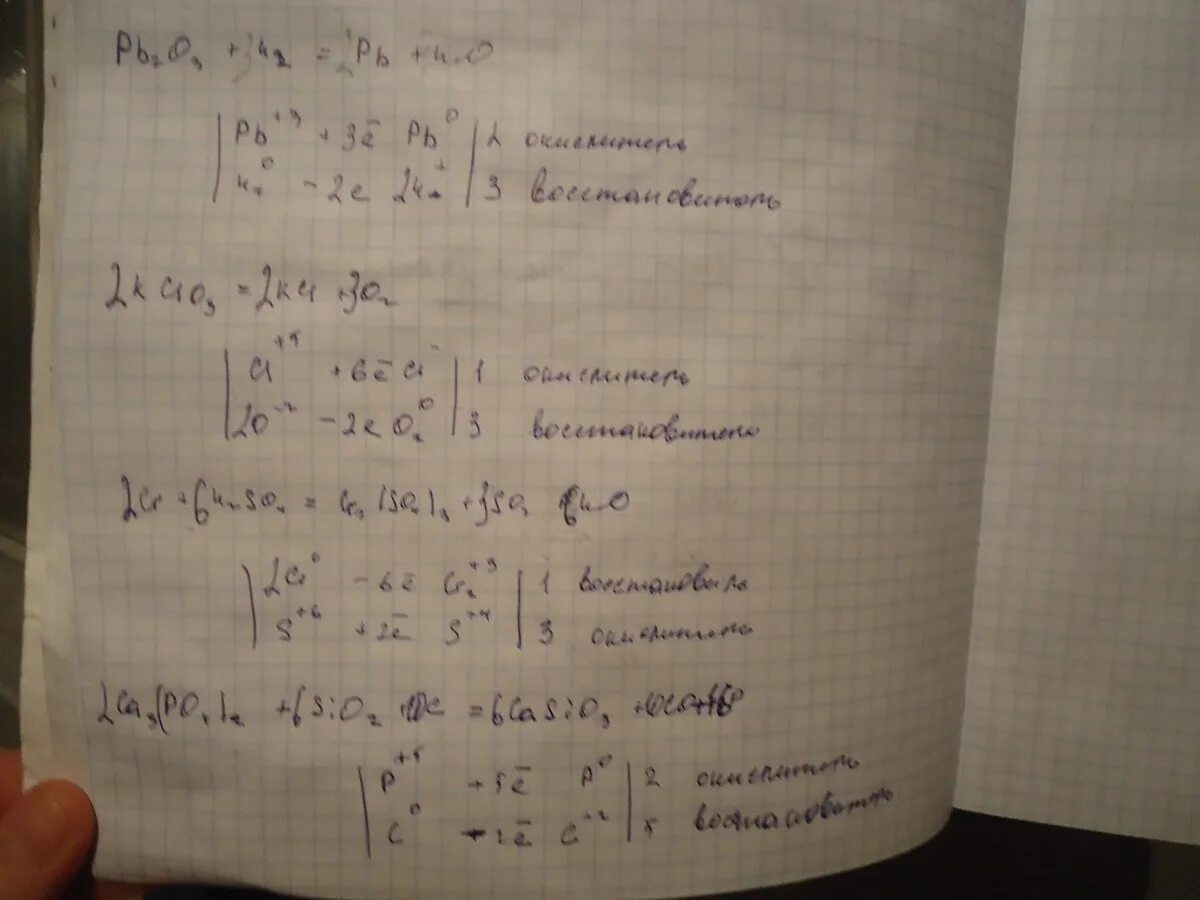 Pb₂O₃ + 3H₂ = 2Pb + H₂O
Pb⁺³ + 3ē Pb⁰ | 2 окислитель
H₂⁰ - 2e 2H⁺ | 3 восстановитель
2KClO₃ = 2KCl + 3O₂
Cl⁺⁵ + 6ē Cl⁻ | 1 окислитель
2O⁻² - 2e O₂⁰ | 3 восстановитель
2Cr + 6H₂SO₄ = Cr₂(SO₄)₃ + 3SO₂ 6H₂O
2Cr⁰ - 6ē Cr₂⁺³ | 1 восстановиль
S⁺⁶ + 2ē S⁺⁴ | 3 окислитель
2Ca₃(PO₄)₂ + 6SiO₂ + 10C = 6CaSiO₃ + 10CO +
P⁺⁵ + 5ē P⁰ | 2 окислитель
C⁰ - 2ē C⁺² | 5 восстановитель